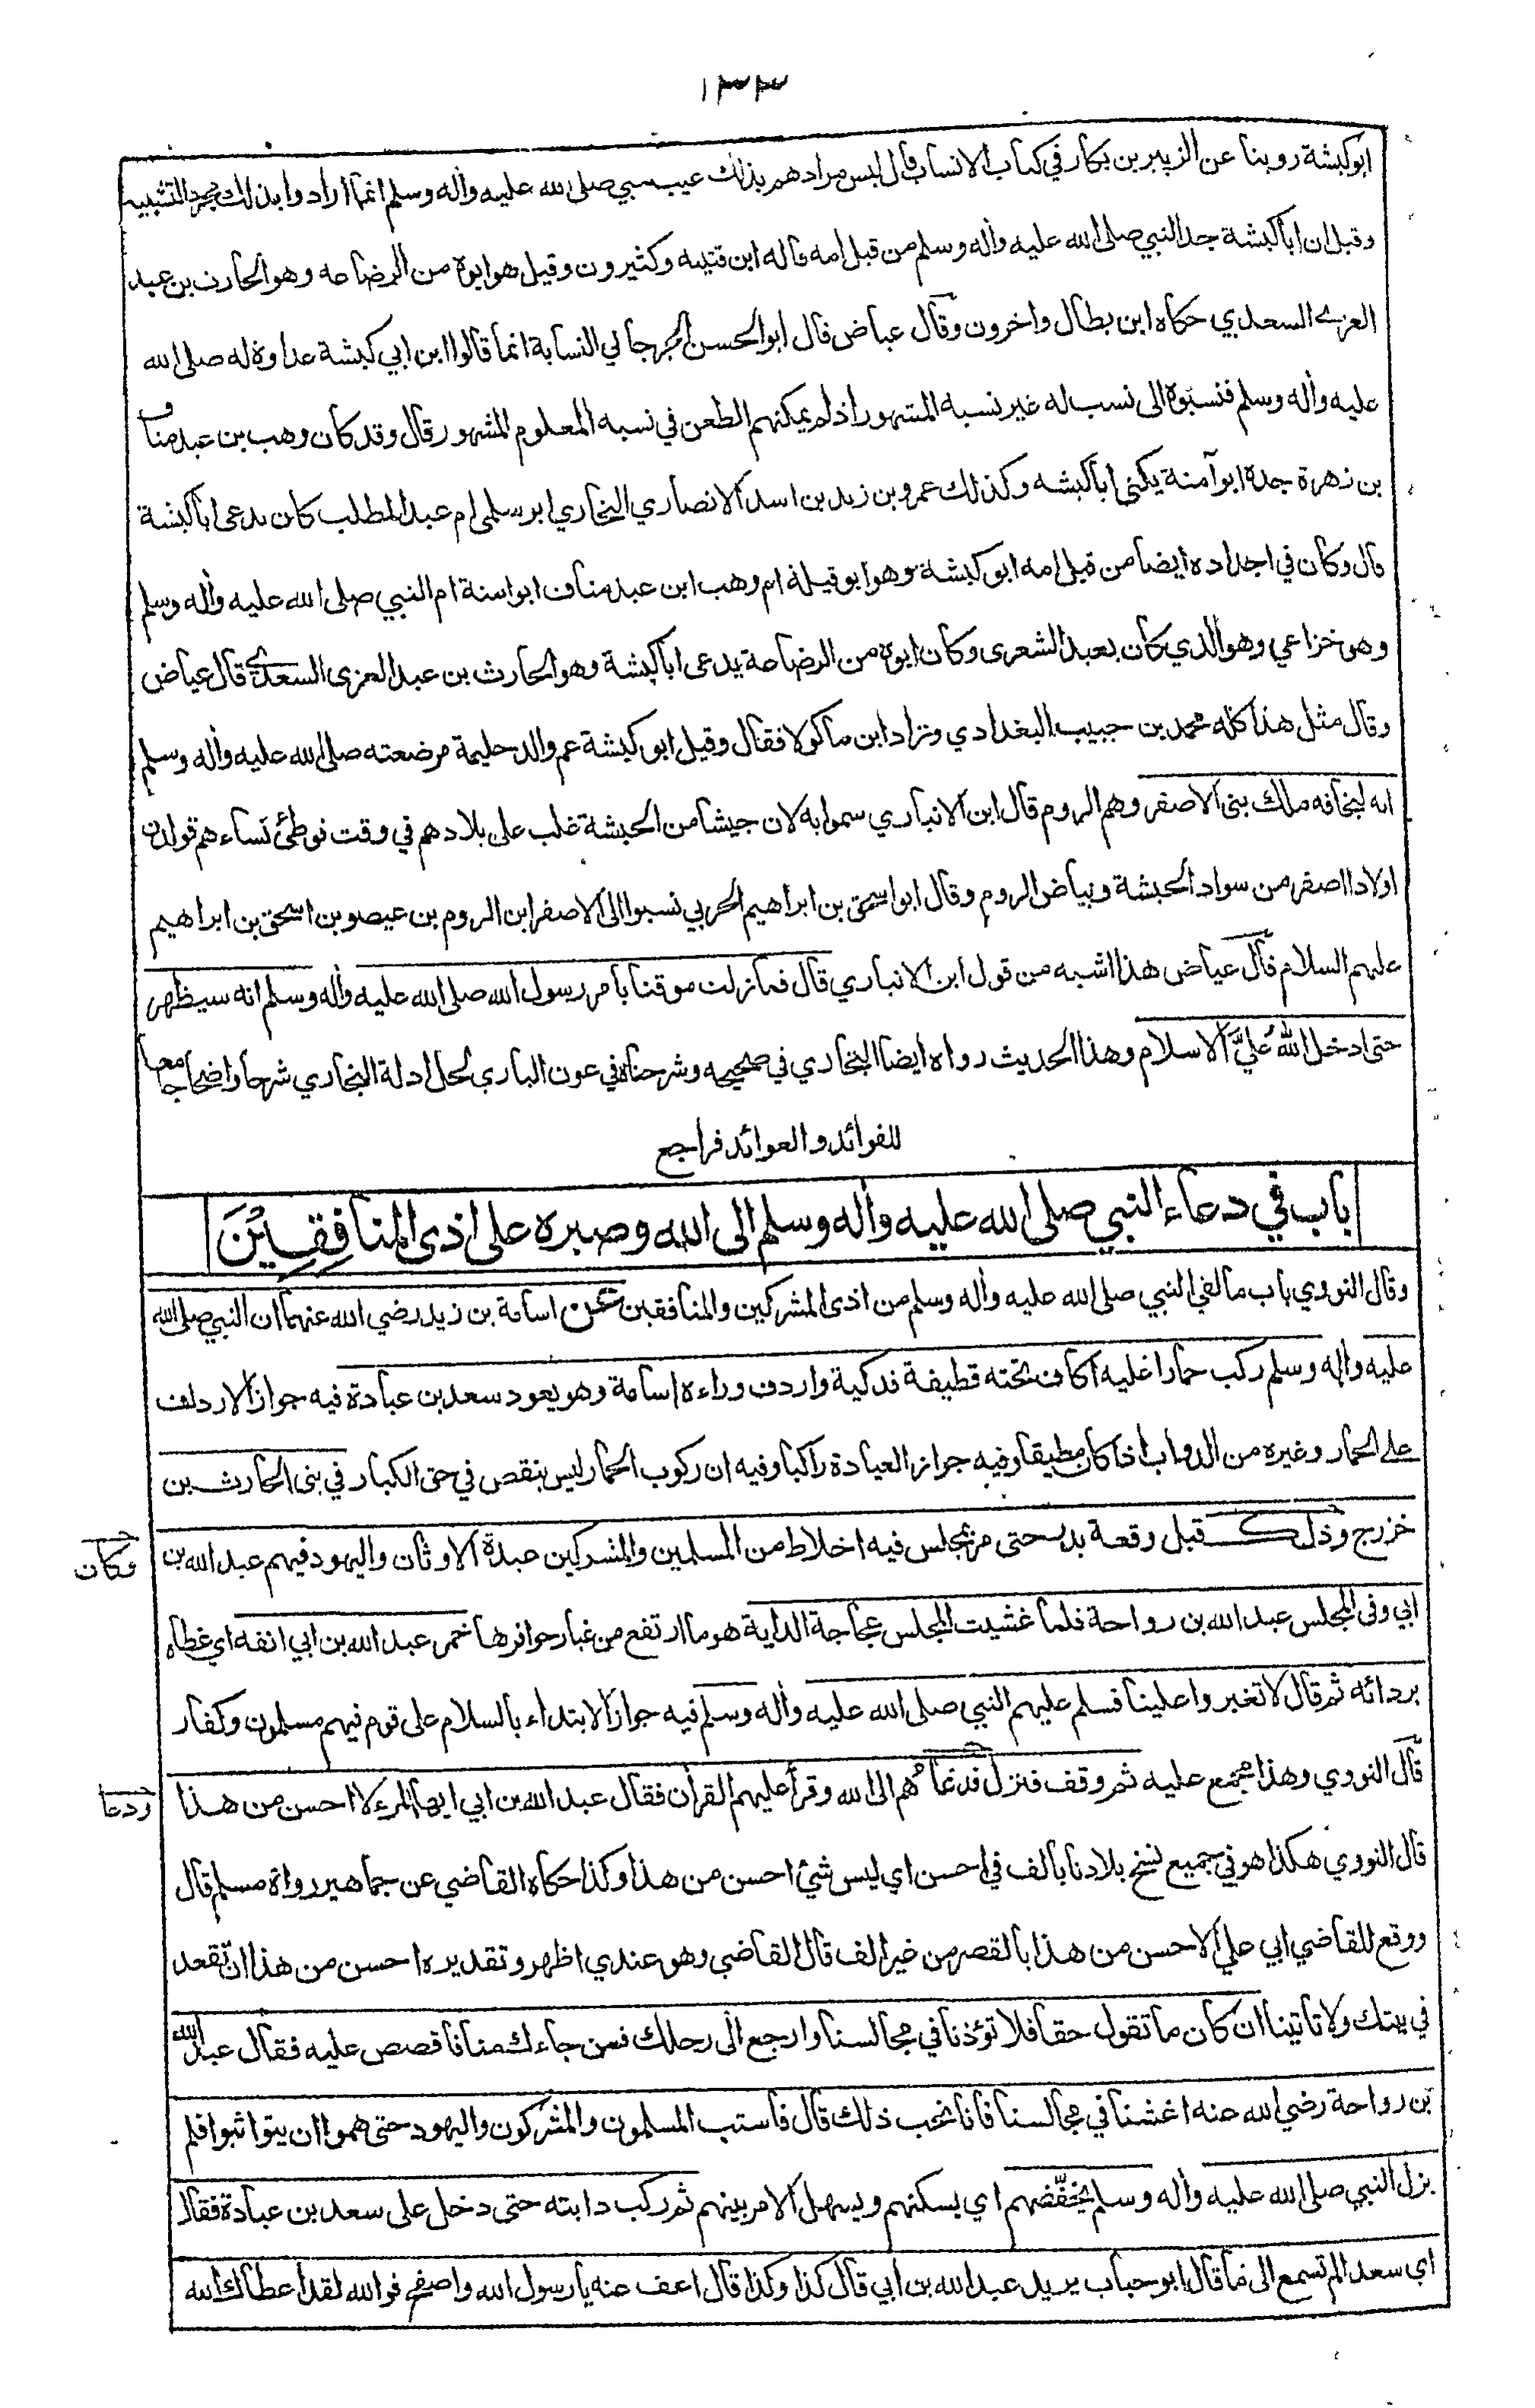 ١٣٣
ابوكبشة روينا عن الزبير بن بكار في كتاب الانساب قال ليس مرادهم بذلك عيب النبي صلى الله عليه وأله وسلم انما ارادوا بذلك مجرد التشبيه
وقيل ان اباكبشة جد النبي صلى الله عليه وأله وسلم من قبل امه قاله ابن قتيبه وكثيرون وقيل هو ابوه من الرضاعه وهو الحارث بن عبد
العزى السعدي حكاه ابن بطال واخرون وقال عياض قال ابو الحسن الجرجاني النسابة انما قالوا ابن ابي كبشة عداوة له صلى الله
عليه وأله وسلم فنسبوه الى نسب له غير نسبه المشهور اذ لم يمكنهم الطعن في نسبه المعلوم المشهور قال وقد كان وهب بن عبد مناف
بن زهرة جده ابو آمنة يكنى اباكبشه وكذلك عمرو بن زيد بن اسد الانصاري النجاري ابو سلمى ام عبد المطلب كان يدعى اباكبشة
قال وكان في اجداده ايضا من قبل امه ابو كبشة وهو ابو قيلة ام وهب ابن عبد مناف ابو امنة ام النبي صلى الله عليه وأله وسلم
وهو خزاعي وهو الذي كان يعبد الشعرى وكان ابوه من الرضاعة يدعى اباكبشة وهو الحارث بن عبد العزى السعدي قال عياض
وقال مثل هذا كله محمد بن حبيب البغدادي وزاد ابن ماكولا فقال وقيل ابو كبشة عم والد حليمة مرضعته صلى الله عليه وأله وسلم
انه ليخافه ملك بني الاصفر وهم الروم قال ابن الانباري سموا به لان جيشا من الحبشة غلب على بلادهم في وقت فوطئ نساءهم فولدن
اولادا اصفر من سواد الحبشة وبياض الروم وقال ابو اسحق بن ابراهيم الحربي نسبوا الى الاصفر ابن الروم بن عيصو بن اسحق بن ابراهيم
عليهم السلام قال عياض هذا اشبه من قول ابن الانباري قال فما زلت موقنا بأمر رسول الله صلى الله عليه وأله وسلم انه سيظهر
حتى ادخل الله علي الاسلام وهذا الحديث رواه ايضا البخاري في صحيحه وشرحناه في عون الباري لحل ادلة البخاري شرحا واضحا جامعا
للفوائد والعوائد فراجع
باب في دعاء النبي صلى الله عليه وأله وسلم الى الله وصبره على اذى المنافقين
وقال النووي باب ما لقي النبي صلى الله عليه وأله وسلم من اذى المشركين والمنافقين عن اسامة بن زيد رضي الله عنهما ان النبي صلى الله
عليه واله وسلم ركب حمارا عليه اكاف تحته قطيفة فدكية واردف وراءه اسامة وهو يعود سعد بن عبادة فيه جواز الارداف
على الحمار وغيره من الدواب اذا كان مطيقا وفيه جواز العيادة راكبا وفيه ان ركوب الحمار ليس بنقص في حق الكبار في بني الحارث بن
خزرج وذلك قبل وقعة بدر حتى مر بمجلس فيه اخلاط من المسلمين والمشركين عبدة الاوثان واليهود فيهم عبد الله بن
وكان
ابي وفي المجلس عبد الله بن رواحة فلما غشيت المجلس عجاجة الدابة هو ما ارتفع من غبار حوافرها خمر عبد الله بن ابي انفه اي غطاه
بردائه ثم قال لا تغبروا علينا فسلم عليهم النبي صلى الله عليه وأله وسلم فيه جواز الابتداء بالسلام على قوم فيهم مسلمون وكفار
قال النووي وهذا مجمع عليه ثم وقف فنزل فدعاهم الى الله وقرأ عليهم القرأن فقال عبد الله بن ابي ايها المرء لا احسن من هذا
ودعا
قال النووي هكذا هو في جميع نسخ بلادنا بالف في احسن اي ليس شئ احسن من هذا وكذا حكاه القاضي عن جماهير رواة مسلم قال
ووقع للقاضي ابي علي لاحسن من هذا بالقصر من غير الف قال القاضي وهو عندي اظهر وتقديره احسن من هذا ان تقعد
في بيتك ولا تاتينا ان كان ما تقول حقا فلا تؤذنا في مجالسنا وارجع الى رحلك فمن جاءك منا فاقصص عليه فقال عبد الله
بن رواحة رضي الله عنه اغشنا في مجالسنا فانا نحب ذلك قال فاستب المسلمون والمشركون واليهود حتى هموا ان يتواثبوا فلم
يزل النبي صلى الله عليه وأله وسلم يخفّضهم اي يسكنهم ويسهل الامر بينهم ثم ركب دابته حتى دخل على سعد بن عبادة فقال
اي سعد الم تسمع الى ما قال ابو حباب يريد عبد الله بن أبي قال كذا وكذا قال اعف عنه يا رسول الله واصفح فو الله لقد اعطاك الله